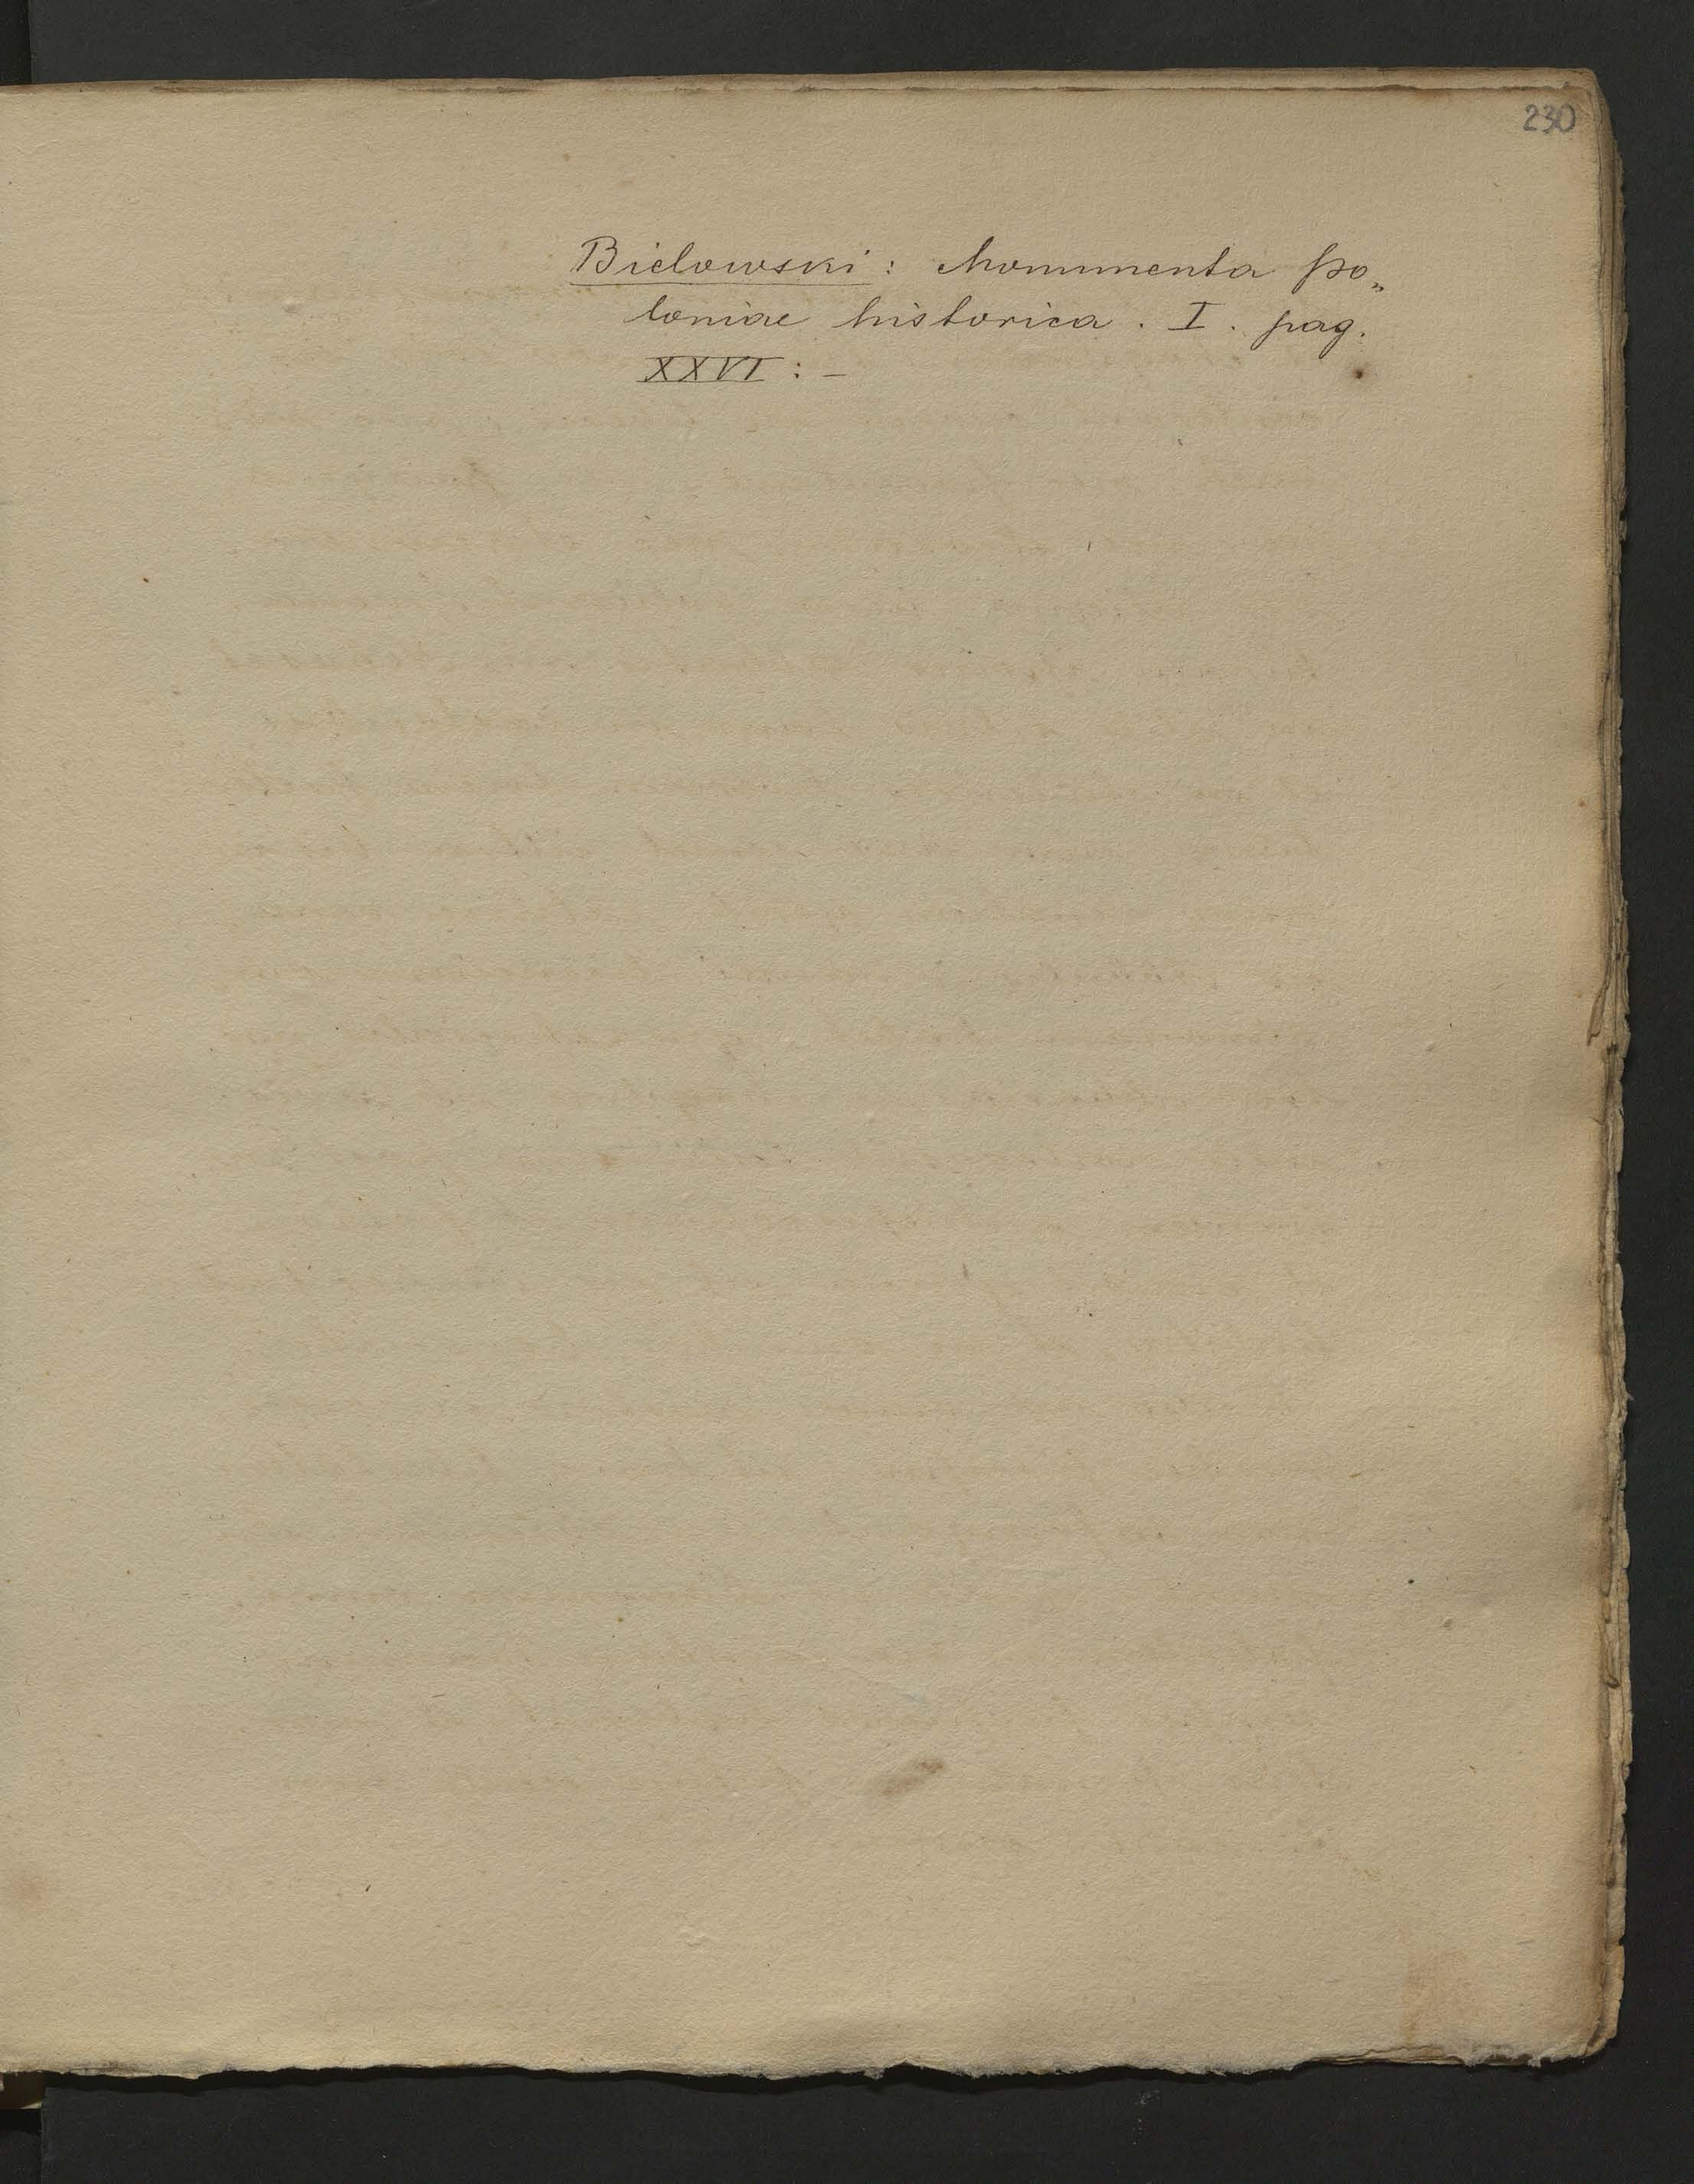 230
Bielowski: Monumenta po„
loniae historica. I. pag.
XXVI: –